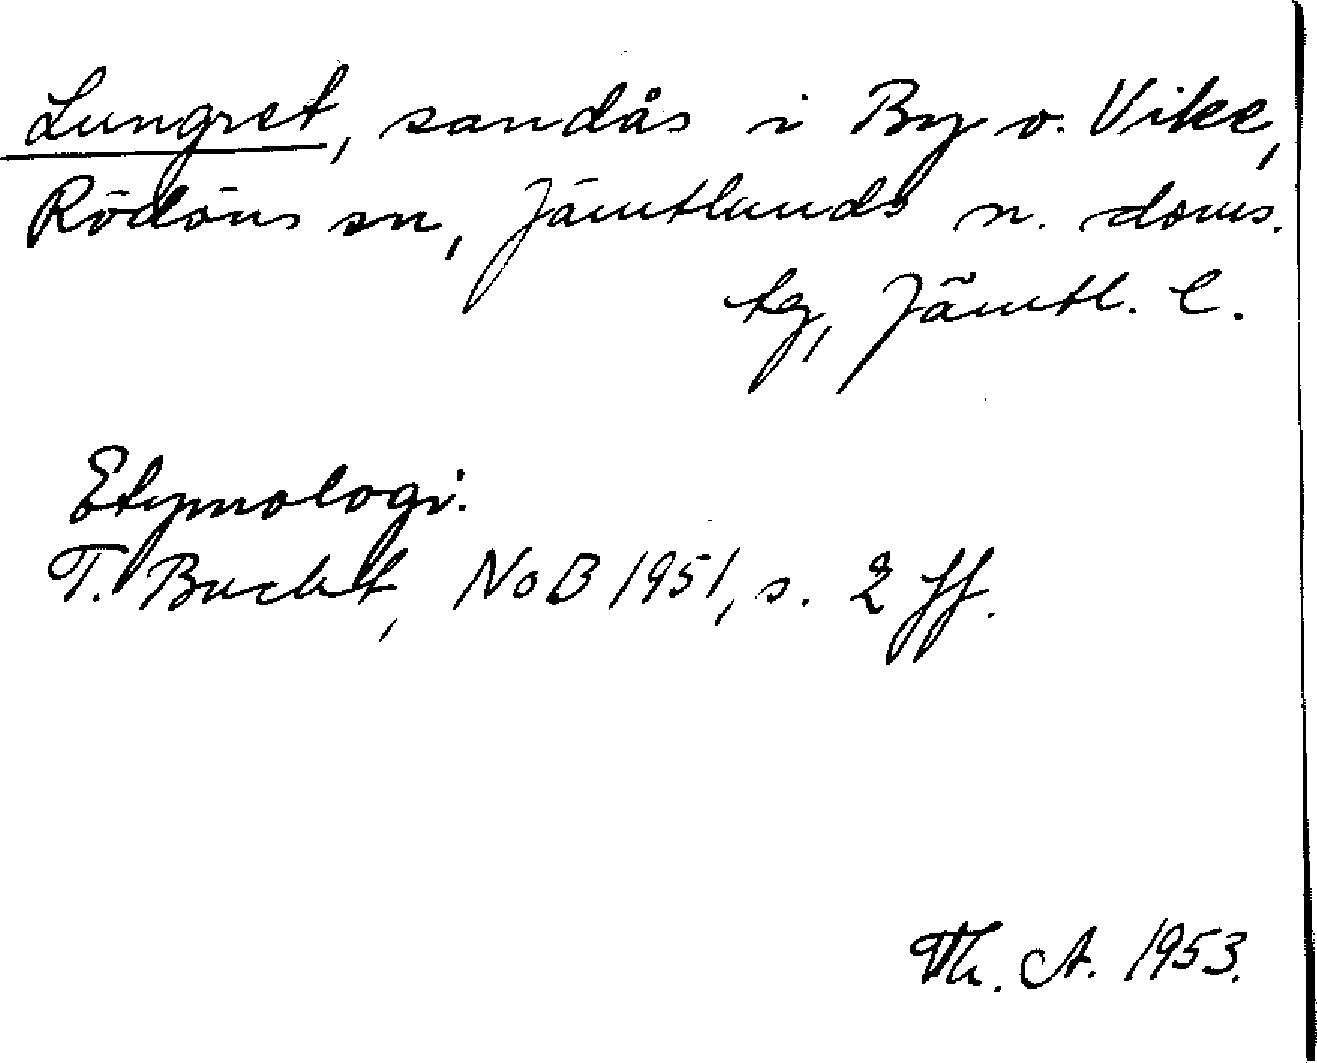 Lungret, sandås i By o. Vike,
Rödöns sn, Jämtlands n. doms.
tg, Jämtl. l.
Etymologi.
T. Bucht, NoB 1951, s. 2 ff.
Th. A. 1953.